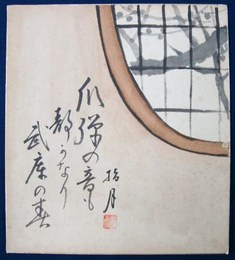 爪弾の音も
静かなり
武庫の春
指月